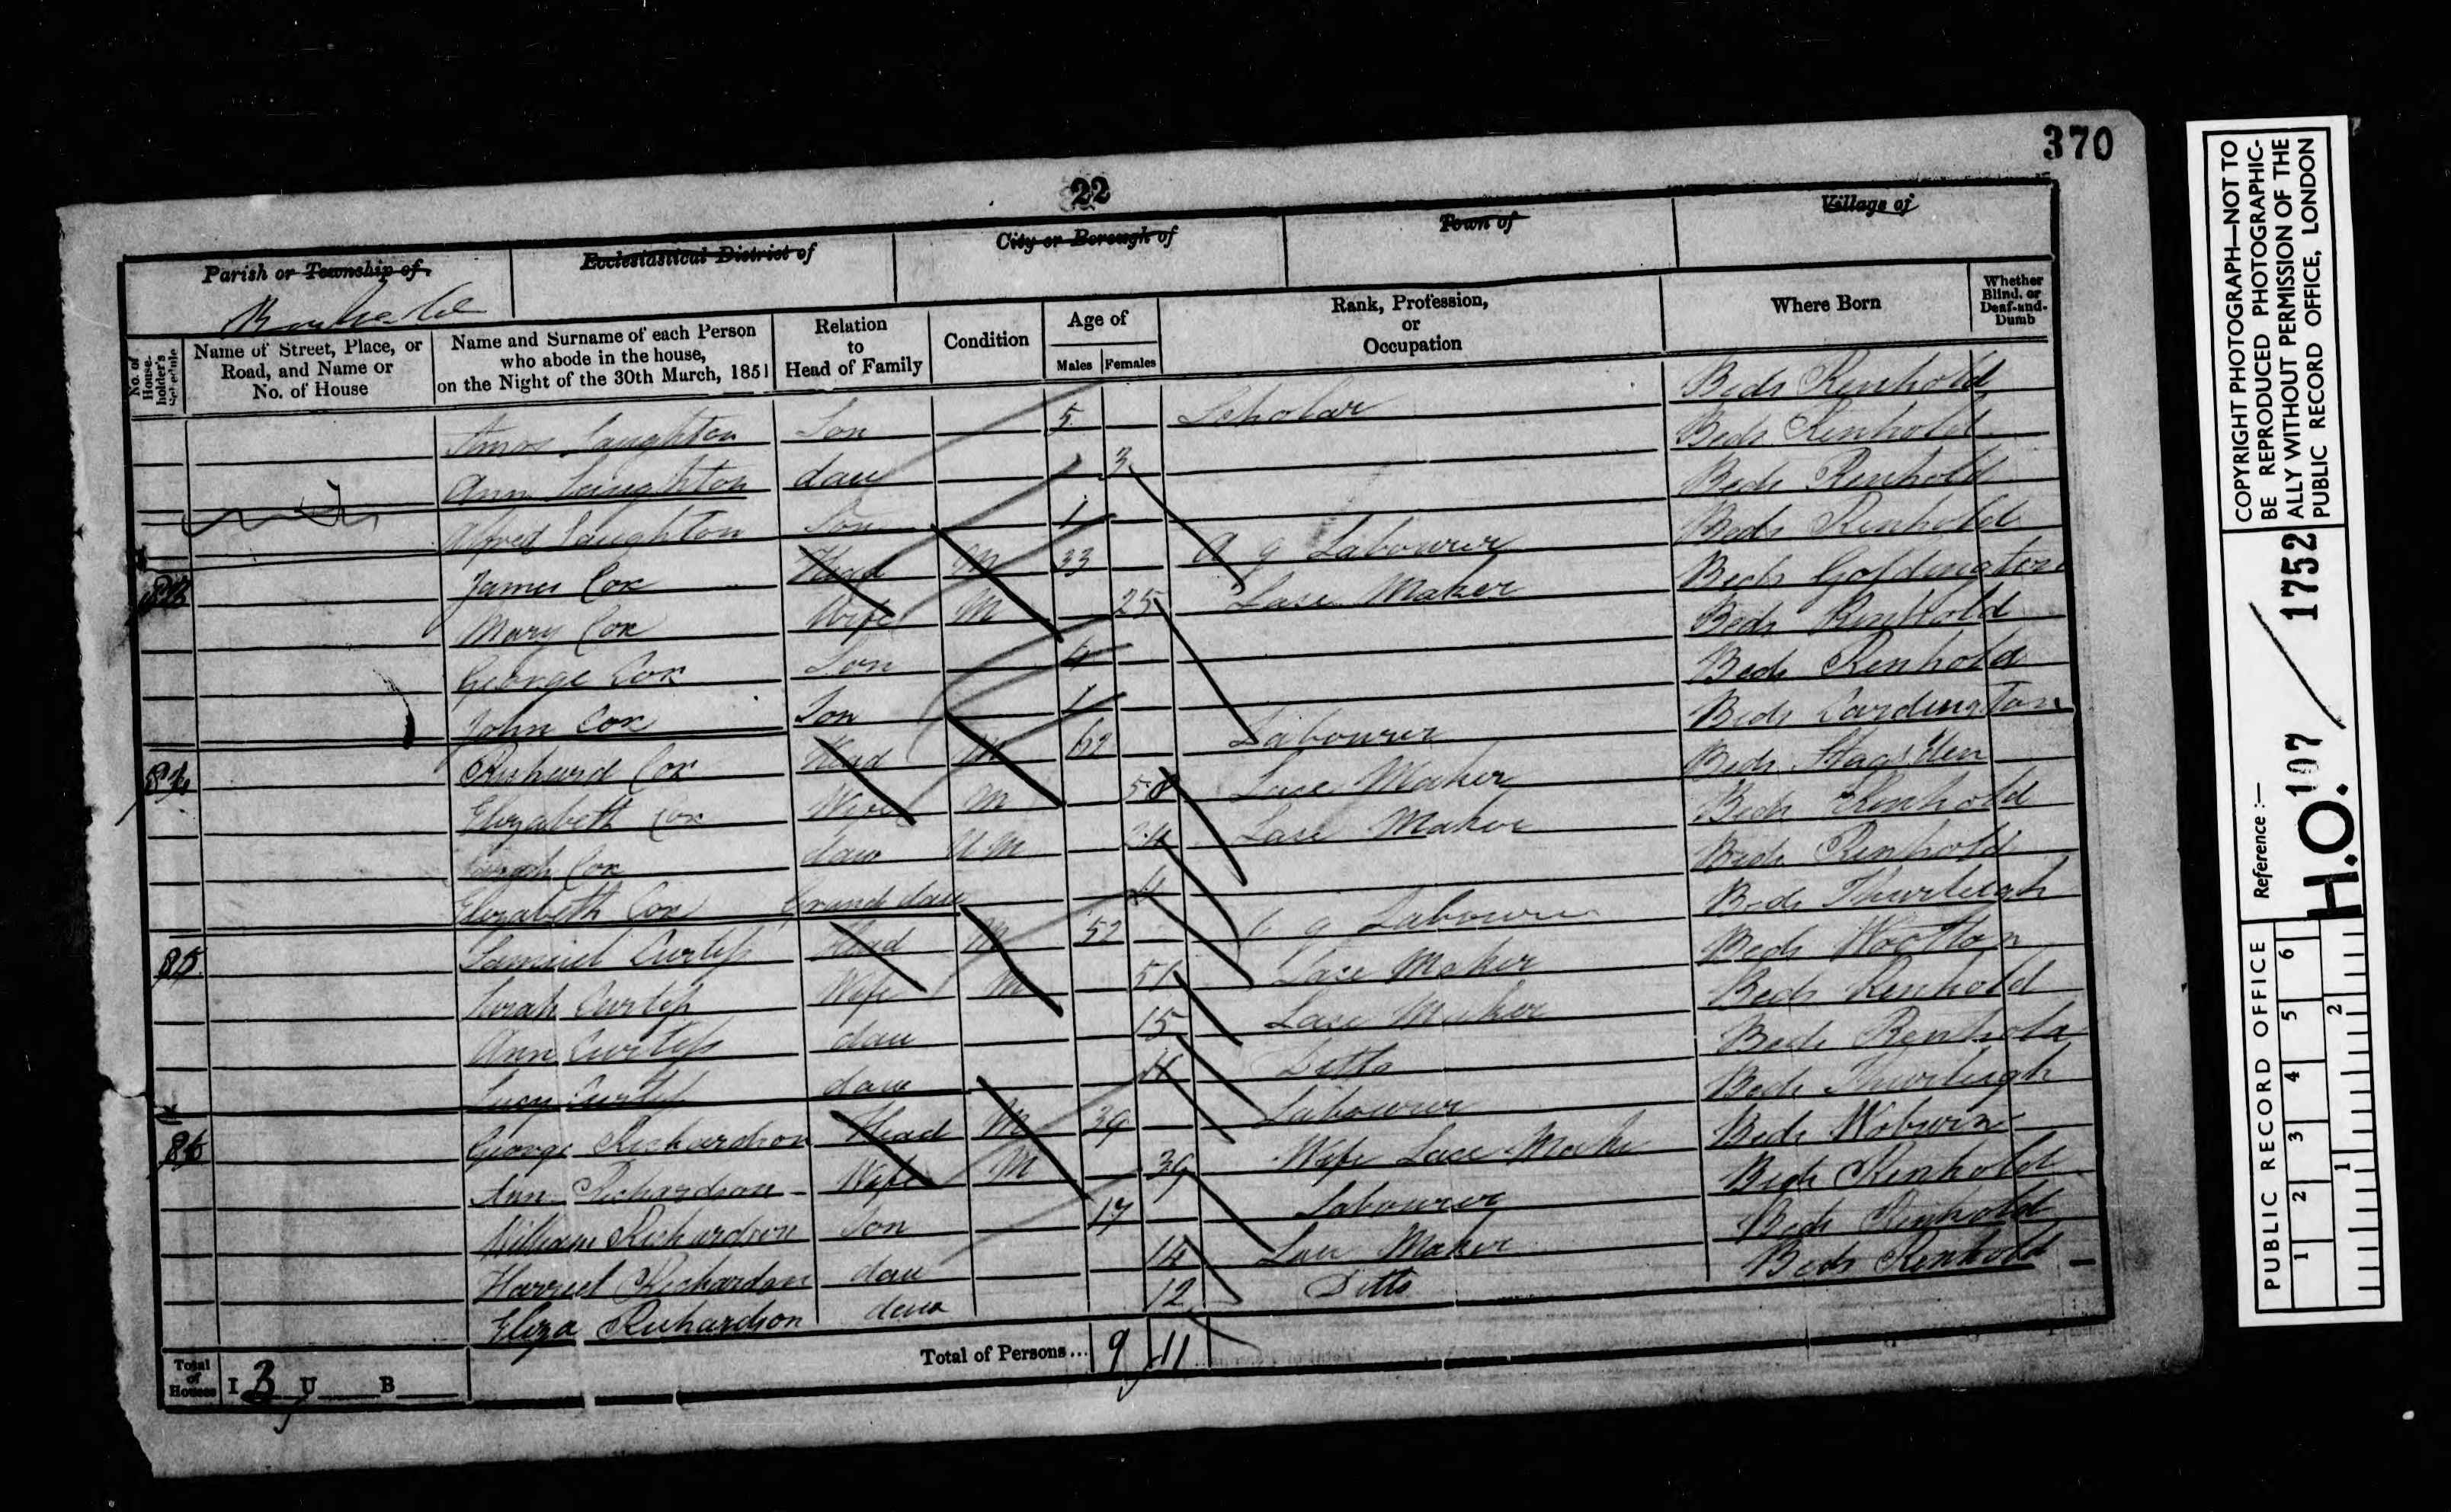 370
22
Parish or Township of
Ecclesiastical District of
City or Borough of
Town of
Village of
No. of House-holder's Schedule
Name of Street, Place, or Road, and Name or No. of House
Name and Surname of each Person who abode in the house, on the Night of the 30th March, 1851
Relation to Head of Family
Condition
Age of
Males Females
Rank, Profession, or Occupation
Where Born
Whether Blind, or Deaf-and-Dumb
Amos Laughton Son 5 Scholar Beds Renhold
Ann Laughton dau 3 Beds Renhold
Alfred Laughton Son 1 Beds Renhold
James Cox Head M 33 Ag Labourer Beds Renhold
Mary Cox Wife M 25 Lace Maker Beds Goldington
George Cox Son 4 Beds Renhold
John Cox Son 1 Beds Renhold
84 Richard Cox Head M Labourer Beds Cardington
Elizabeth Cox Wife M 58 Lace Maker Beds Stagsden
Sarah Cox dau UM 24 Lace Maker Beds Renhold
Elizabeth Cox Grand dau 4 Beds Renhold
85 Samuel Curtiss Head M 52 Labourer Beds Thurleigh
Sarah Curtiss Wife M 51 Lace Maker Beds Wootton
Ann Curtiss dau 15 Lace Maker Beds Renhold
Lucy Curtiss dau 11 Ditto Beds Renhold
86 George Richardson Head M 39 Labourer Beds Thurleigh
Ann Richardson Wife M 39 Wife Lace Maker Beds Woburn
William Richardson Son 17 Labourer Beds Renhold
Harriet Richardson dau 14 Lace Maker Beds Renhold
Eliza Richardson dau 12 Ditto Beds Renhold
Total of Houses I 3 U B
Total of Persons... 9 11
COPYRIGHT PHOTOGRAPH—NOT TO
BE REPRODUCED PHOTOGRAPHIC-
ALLY WITHOUT PERMISSION OF THE
PUBLIC RECORD OFFICE, LONDON
PUBLIC RECORD OFFICE
Reference :—
H.O. 107 / 1752
1 2 3 4 5 6
1 2